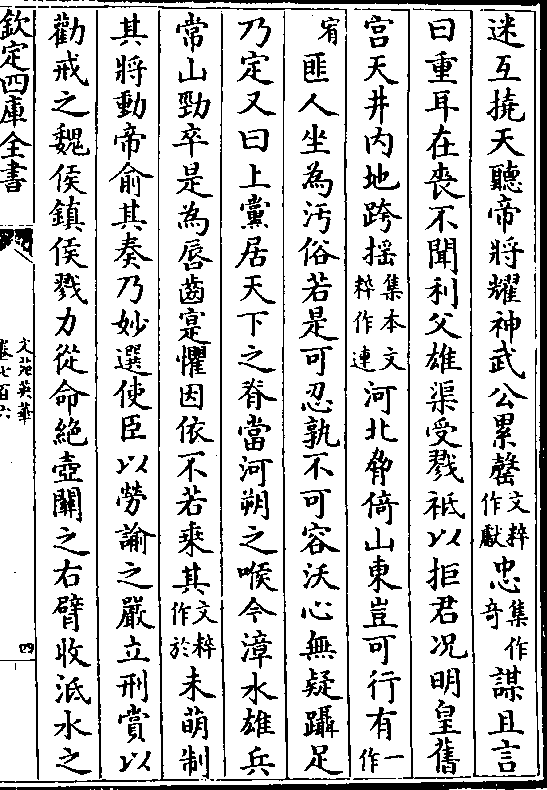 迷互撓天聽帝將耀神武公累罄文粹作獻忠集作奇謀且言
曰重耳在喪不聞利父雄渠受戮祗以拒君况明皇舊
宫天井内地跨揺集本文粹作連河北脅倚山東豈可行有一作
宥匪人坐為汚俗若是可忍孰不可容沃心無疑躡足
乃定又曰上黨居天下之脊當河朔之喉今漳水雄兵
常山勁卒是為唇齒寔懼因依不若乘其文粹作於未萌制
其將動帝俞其奏乃妙選使臣以勞諭之嚴立刑賞以
勸戒之魏侯鎮侯戮力從命絶壺關之右臂收泜水之
欽定四庫全書
文苑英華
卷七百六
四